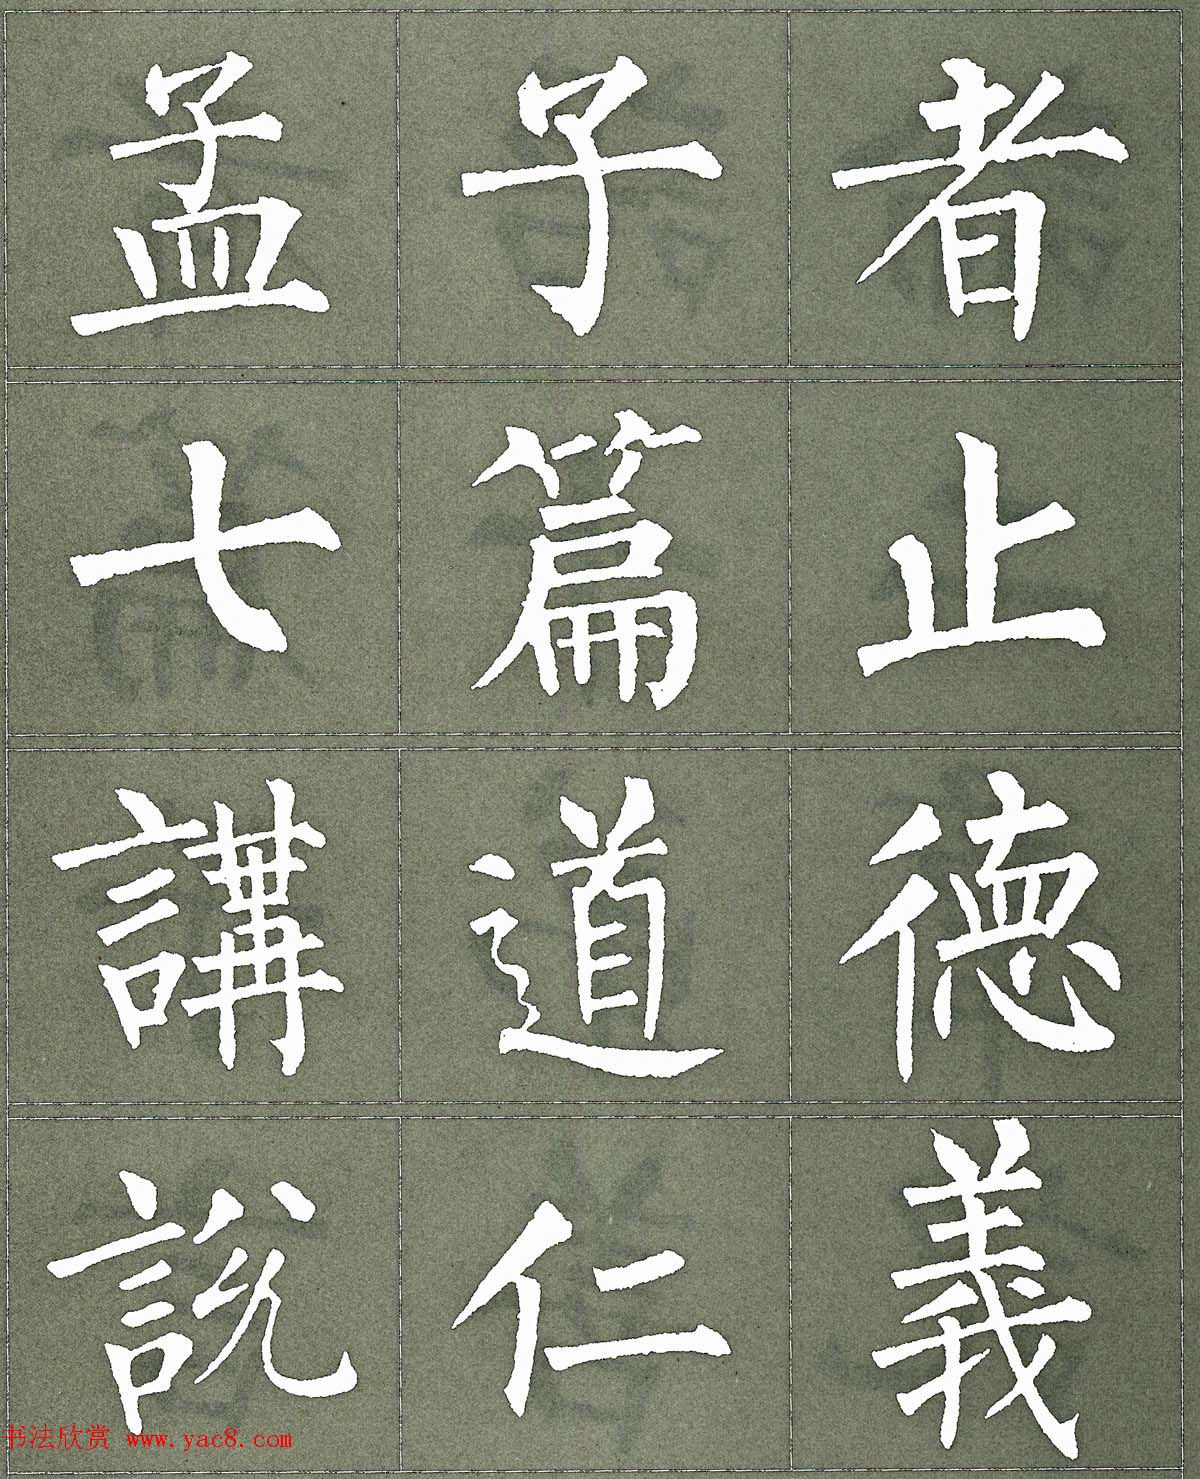 孟子者
七篇止
講道德
説仁義
书法欣赏 www.yac8.com